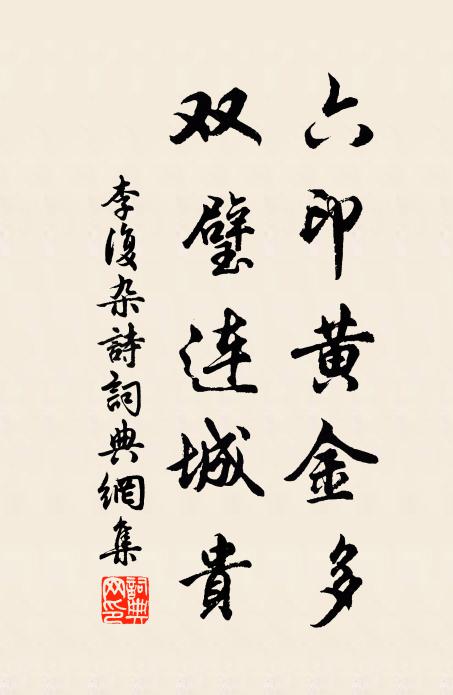 六印黄金多
双璧连城貴
李復杂詩詞典網集
詞典網印